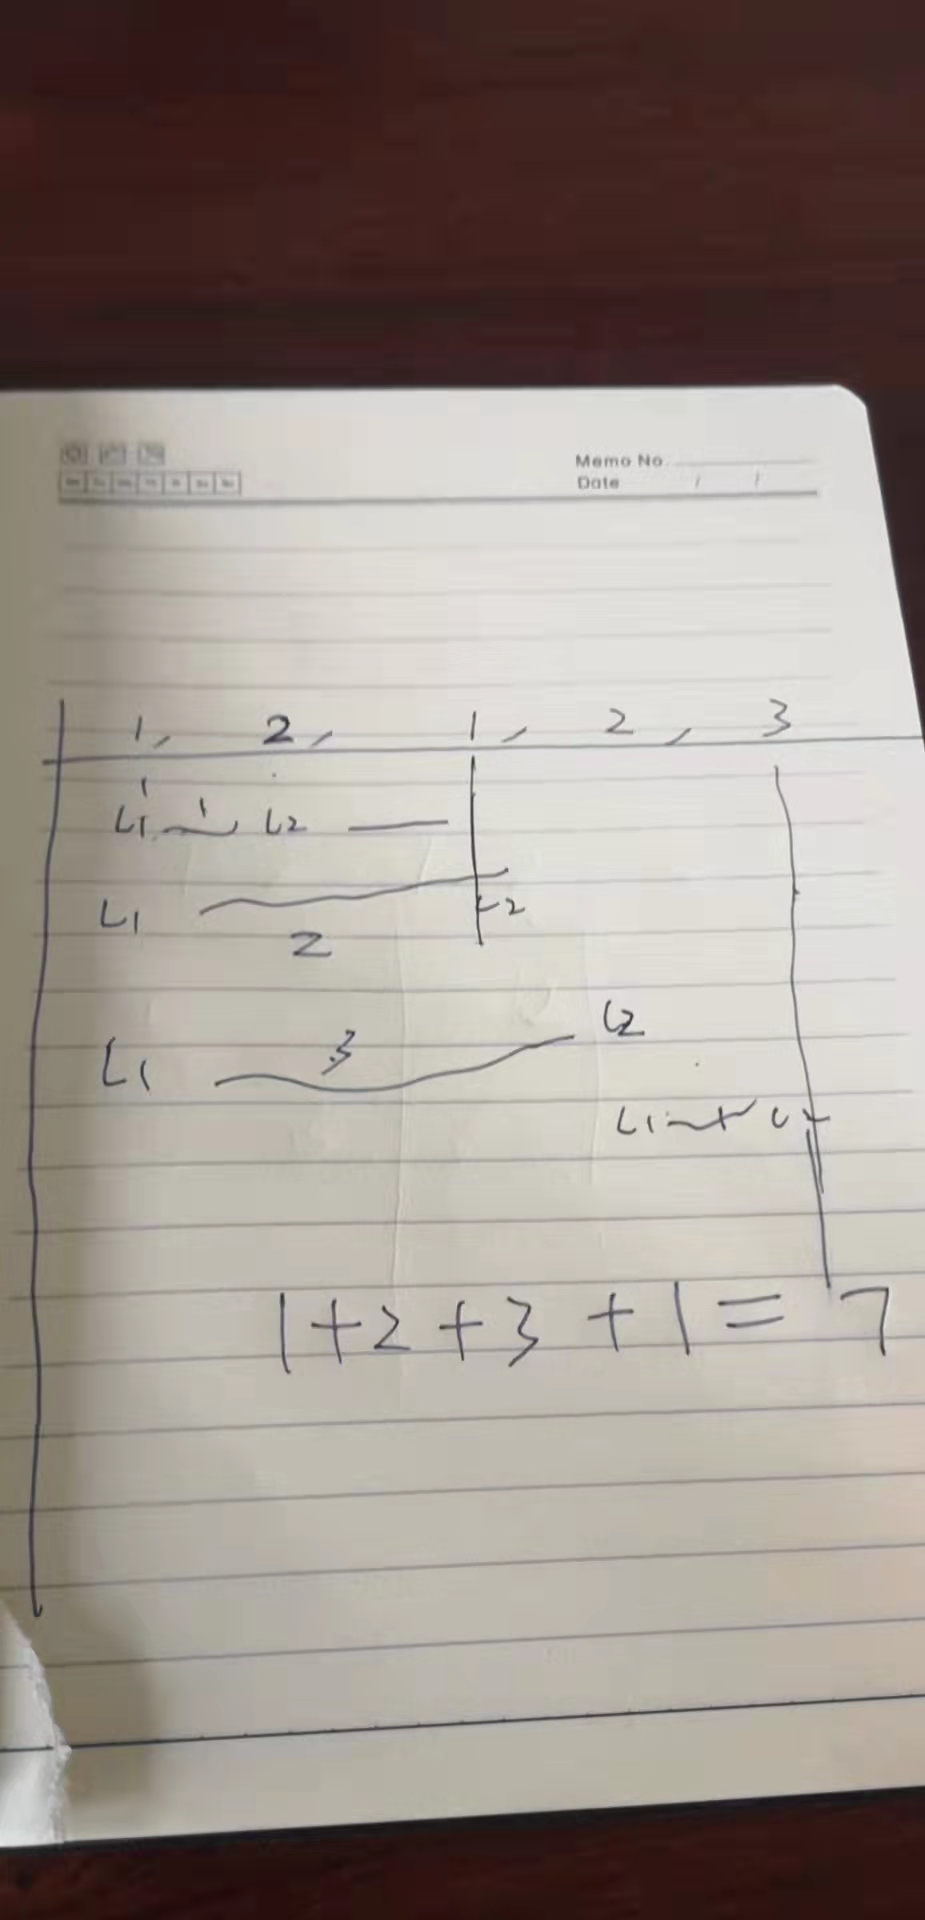 Memo No.
Date / /
1, 2, 1, 2, 3
L1 1 L2
L1 L2
2
L1 3 L2
L1
1+2+3+1=7